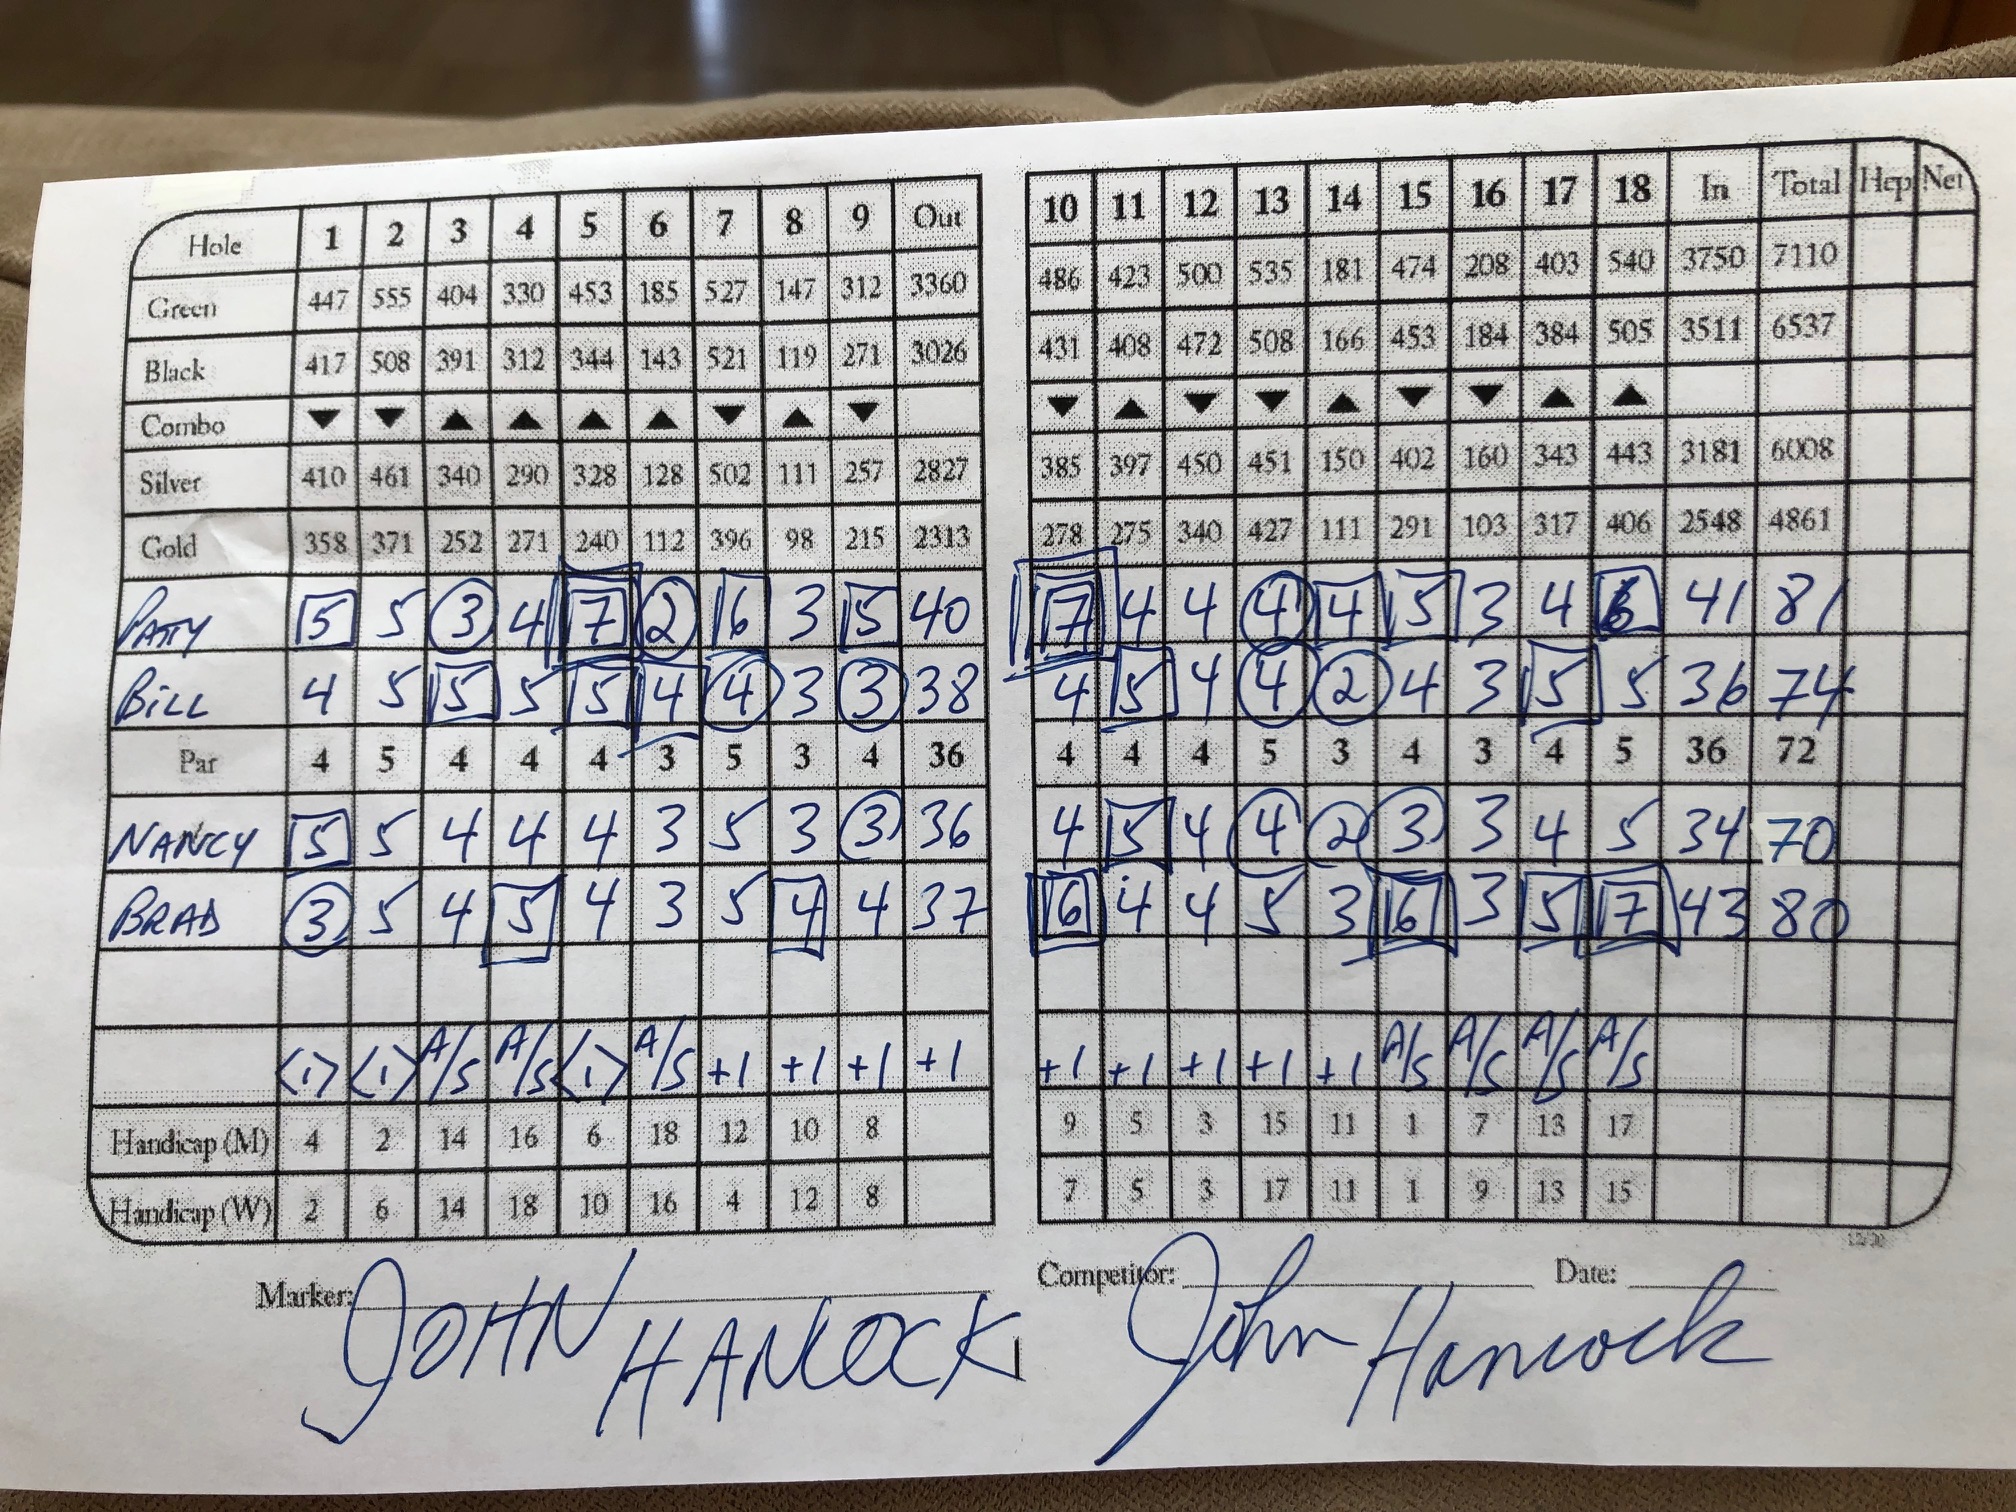 Hole 1 2 3 4 5 6 7 8 9 Out 10 11 12 13 14 15 16 17 18 In Total Hcp Net
Green 447 555 404 330 453 185 527 147 312 3360 486 423 500 535 181 474 208 403 540 3750 7110
Black 417 508 391 312 344 143 521 119 271 3026 431 408 472 508 166 453 184 384 505 3511 6537
Combo ▼ ▼ ▲ ▲ ▲ ▲ ▼ ▲ ▼ ▼ ▲ ▼ ▼ ▲ ▼ ▼ ▲ ▲
Silver 410 461 340 290 328 128 502 111 257 2827 385 397 450 451 150 402 160 343 443 3181 6008
Gold 358 371 252 271 240 112 396 98 215 2313 278 275 340 427 111 291 103 317 406 2548 4861
PATTY 5 5 3 4 7 2 6 3 5 40 7 4 4 4 4 5 3 4 6 41 81
BILL 4 5 5 5 5 4 4 3 3 38 4 5 4 4 2 4 3 5 5 36 74
Par 4 5 4 4 4 3 5 3 4 36 4 4 4 5 3 4 3 4 5 36 72
NANCY 5 5 4 4 4 3 5 3 3 36 4 5 4 4 2 3 3 4 5 34 70
BRAD 3 5 4 5 4 3 5 4 4 37 6 4 4 5 3 6 3 5 7 43 80
<1> <1> A/S A/S <1> A/S +1 +1 +1 +1 +1 +1 +1 +1 +1 A/S A/S A/S A/S
Handicap (M) 4 2 14 16 6 18 12 10 8 9 5 3 15 11 1 7 13 17
Handicap (W) 2 6 14 18 10 16 4 12 8 7 5 3 17 11 1 9 13 15
12/20
Marker: JOHN HANCOCK Competitor: John Hancock Date: